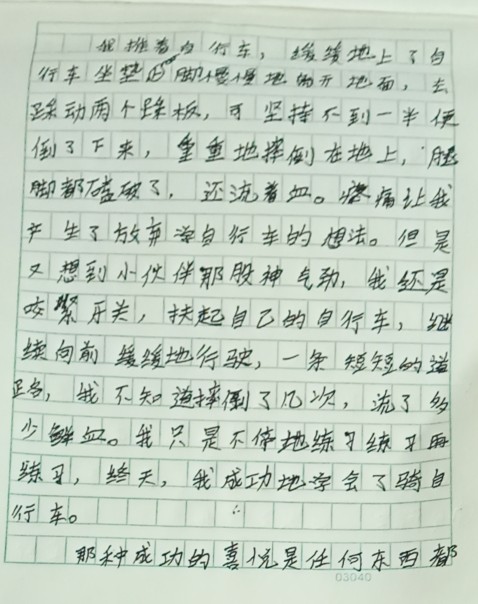 我推着自行车，缓缓地上了自
行车坐垫，脚慢慢地离开地面，去
踩动两个踩板，可坚持不到一半便
倒了下来，重重地摔倒在地上，腿
脚都磕破了，还流着血。疼痛让我
产生了放弃学自行车的想法。但是
又想到小伙伴那股神气劲，我还是
咬紧牙关，扶起自己的自行车，继
续向前缓缓地行驶，一条短短的道
路，我不知道摔倒了几次，流了多
少鲜血。我只是不停地练习练习再
练习，终天，我成功地学会了骑自
行车。
那种成功的喜悦是任何东西都
03040